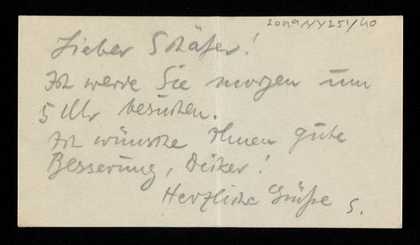 Zona NY251/40
Lieber Schäfer!
Ich werde Sie morgen um
5 Uhr besuchen.
Ich wünsche Ihnen gute
Besserung,
Herzliche Grüße S.